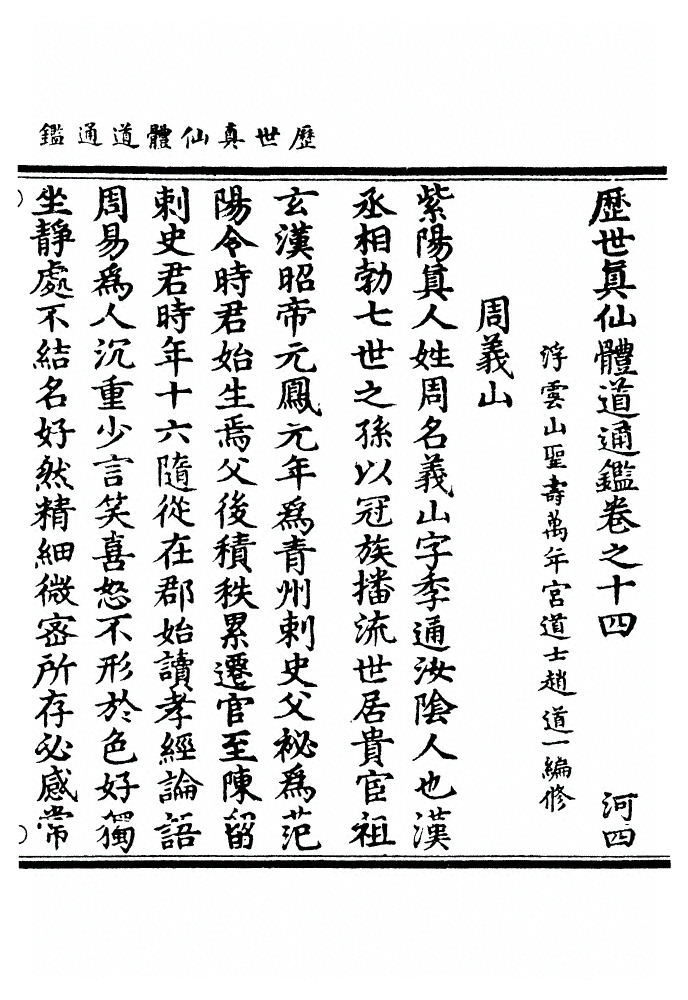 歷世真仙體道通鑑
歷世真仙體道通鑑卷之十四 河四
浮雲山聖壽萬年宮道士趙道一編修
周義山
紫陽真人姓周名義山字季通汝陰人也漢
丞相勃七世之孫以冠族播流世居貴宦祖
玄漢昭帝元鳳元年為青州刺史父祕為范
陽令時君始生焉父後積秩累遷官至陳留
刺史君時年十六隨從在郡始讀孝經論語
周易為人沉重少言笑喜怒不形於色好獨
坐靜處不結名好然精細微密所存必感常